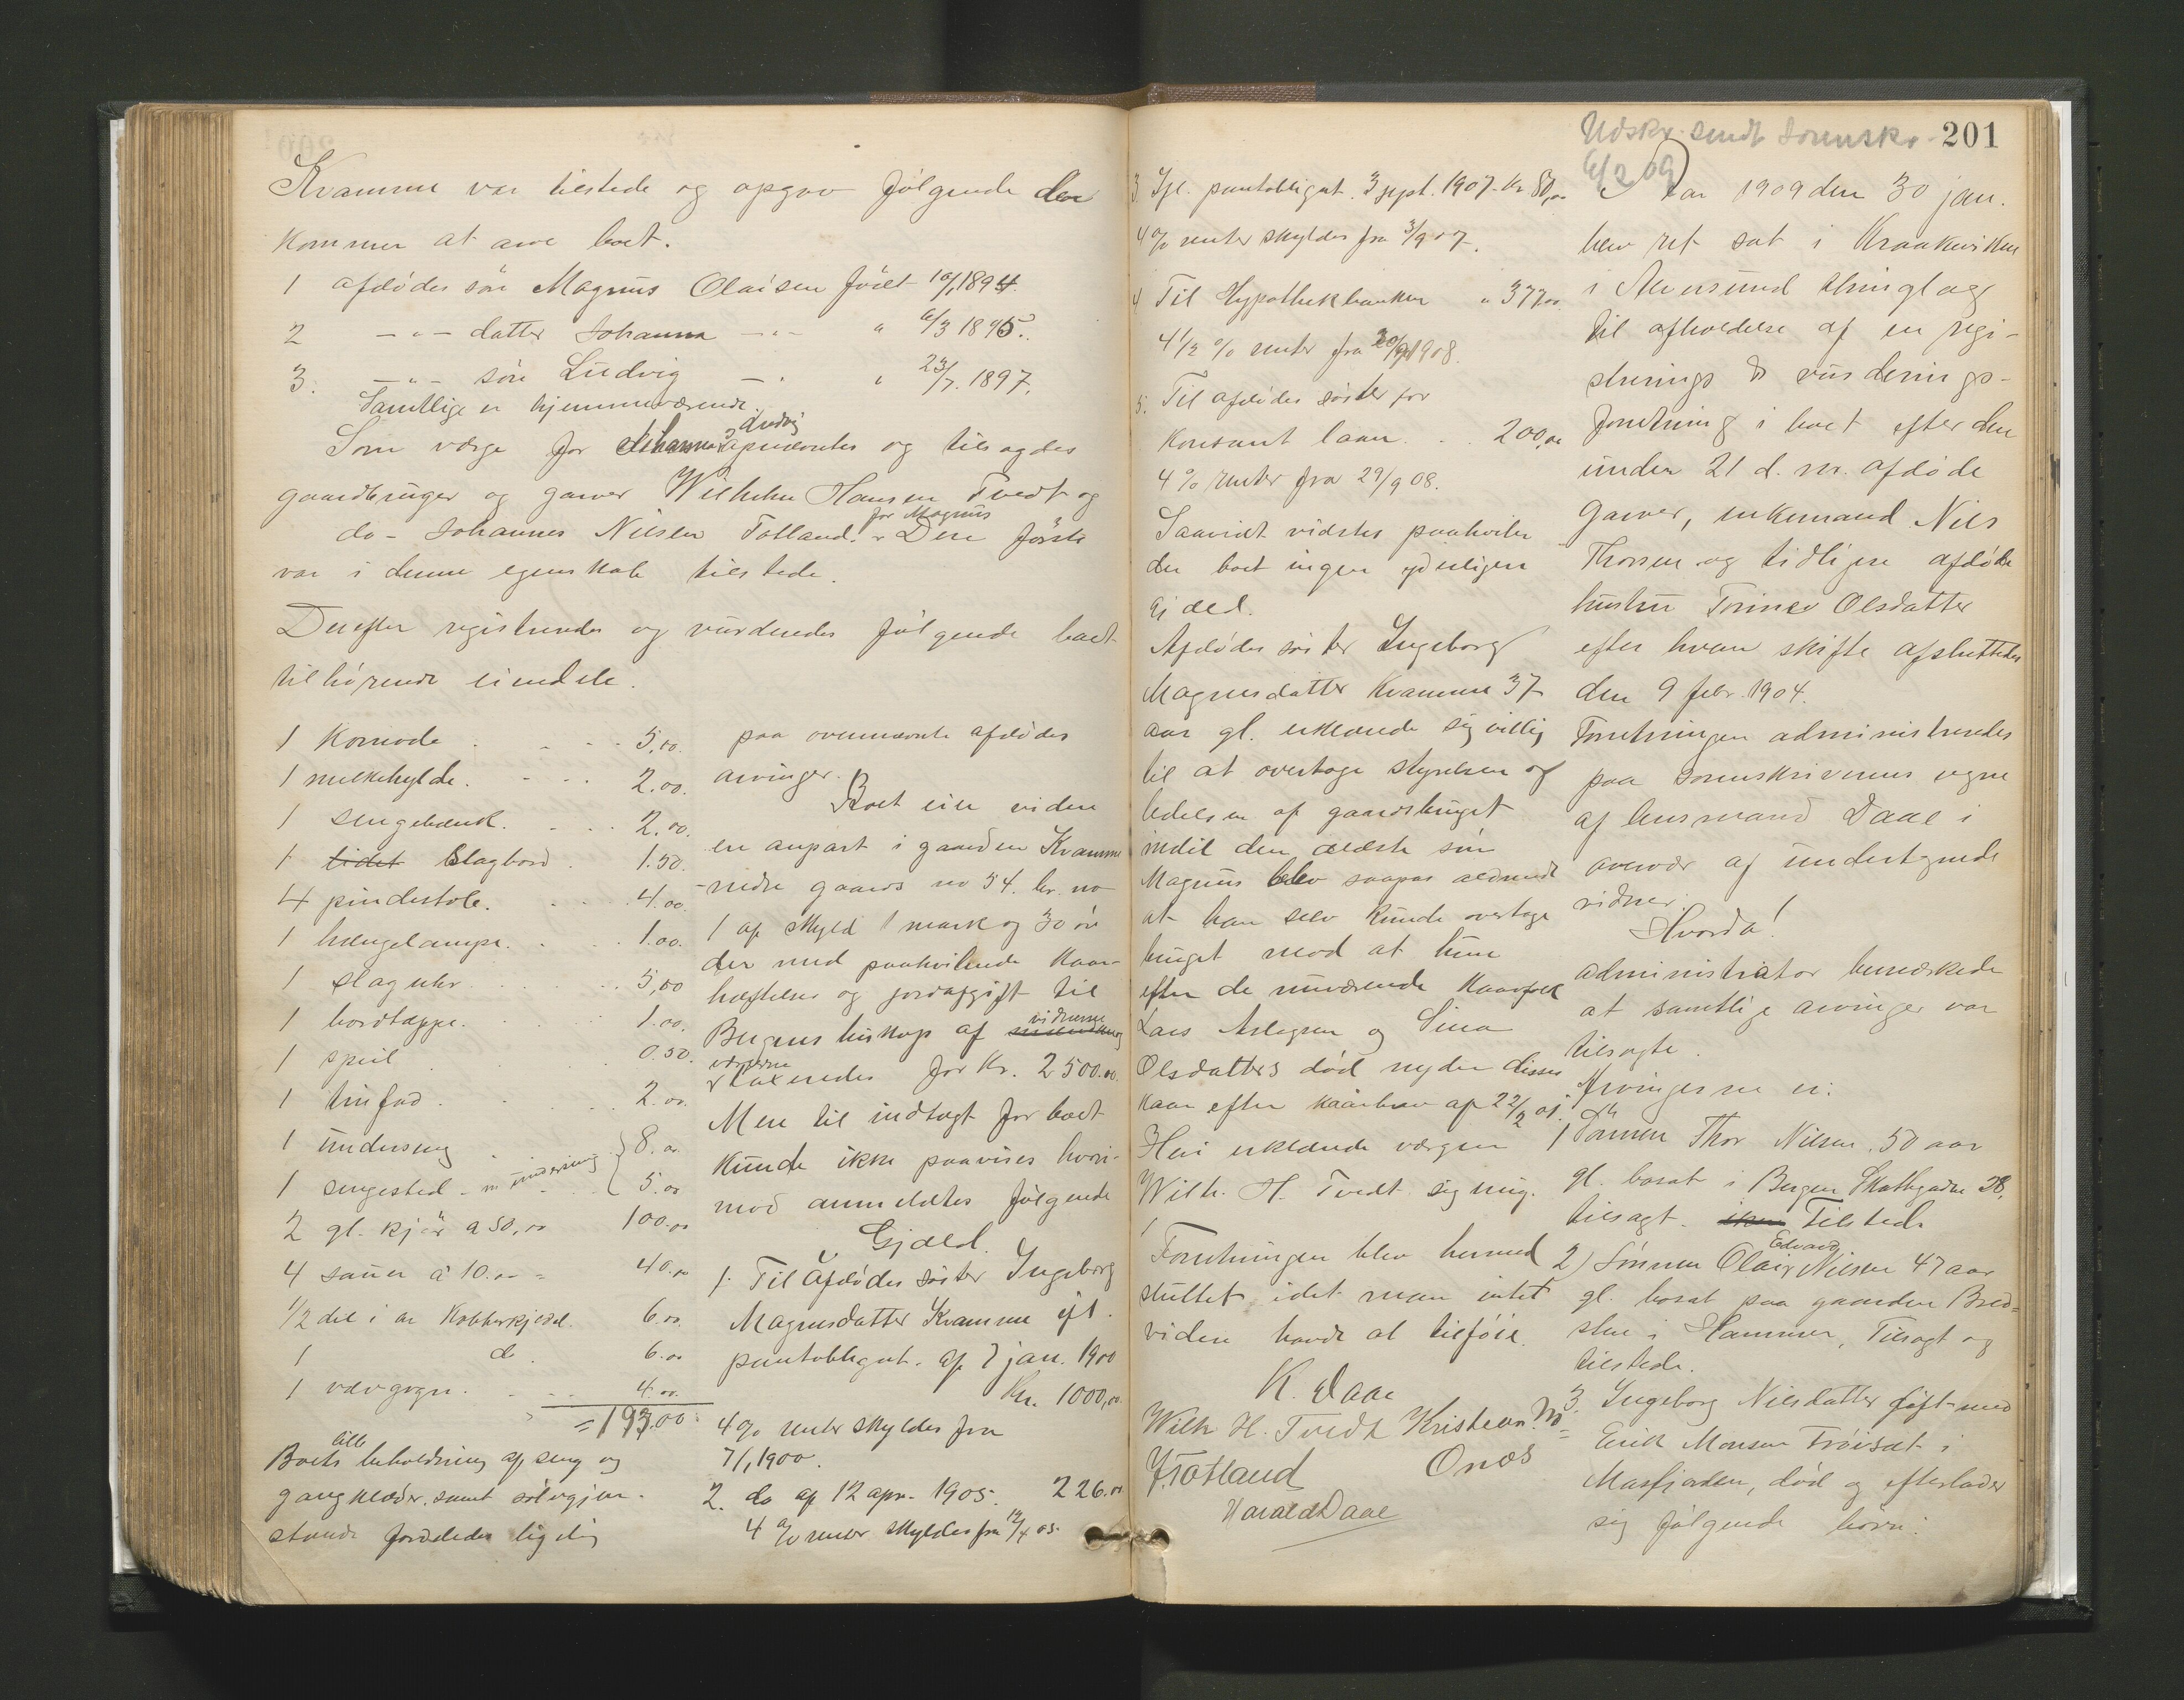 Kvamme var tilstede og opgav følgende der
kommer at arve boet.
1 afdødes søn Magnus Olaisen født 10/1 1894.
2 -"- datter Johanna -"- " 6/3 1895.
3. -"- søn Ludvig -"- " 23/7. 1897.
Samtlige er hjemmeværende.
Som verge for Johanna og Ludvig opnævntes og tilsagdes
gaardbruger og garver Wilhelm Hansen Tvedt og
do - Johannes Nilsen Totland for Magnus. Den første
var i denne egenskab tilstede.
Derefter registreredes og vurderedes følgende boet
tilhørende eiendele.
1 Komode 5,00.
1 melkehylde. 2.00.
1 sengebænk. 2.00.
1 lidet Slagbord. 1.50.
4 pindestole. 4.00.
1 hængelampe. 1.00.
1 slaguhr 5,00
1 bordtæppe. 1.00.
1 speil 0.50.
1 tinfad. 2.00.
1 underseng 8.00
1 sengested - m underseng 5.00
2 gl. kjør a 50,00 100.00
4 sauer à 10.00 = 40.00
1/2 del i en Kobberkjedel. 6.00.
1 do. 6.00
1 vævgogn. 4.00.
= 193.00
Boets lille beholdning af seng og
gangklæder, samt sølvgjen-
stande fordeltes ligelig
paa ovennævnte afdødes
arvinger.
Boet eier viden
en anpart i gaarden Kvamme
nedre gaards no 54. br. no
1 af skyld 1 mark og 30 øre
der med paahvilende kaar-
hæftelser og jordafgift til
Bergens biskop af vidnerne
værgerne
taxeredes for Kr. 2500.00.
Mere til indtægt for boet
kunde ikke paavises hvori-
mod anmeldtes følgende
Gjæld.
1. Til Afdødes søster Ingeborg
Magnusdatter Kvamme ifl.
pantobligat. af 7 jan. 1900
Kr. 1000,00
4 % renter skyldes fra
7/1 1900.
2. do af 12 apr. 1905. 226.00
4 % renter skyldes fra 12/4 05.
3. Ifl. pantobligat. 3 sept. 1907. Kr 80,00
4 % renter skyldes fra 3/9 07.
4 Til Hypothekbanken " 377.00
4 1/2 % renter fra 20/9 1908.
5. Til afdødes søster for
Kontant laan. 200,00
4 % renter fra 29/9 08.
Saavidt vidstes paahviler
der boet ingen yderligere
gjæld.
Afdødes søster Ingeborg
Magnusdatter Kvamme 37
aar gl. erklærede sig villig
til at overtage styrelsen og
ledelsen af gaardsbruget
indtil den ældste søn
Magnus blev saapas aldrende
at han selv kunde overtage
bruget mod at hun
efter de nuværende kaarfolk
Lars Aslagsen og Sina
Olsdatters død nyder disses
kaar efter kaarbrev af 22/2 01.
Heri erklærede værgen
Wilh. H. Tvedt sig enig.
Forretningen blev hermed
sluttet idet man intet
viden havde at tilføie.
K. Daae
Wilh H. Tvedt Kristian M
J. Totland Onæs
Harald Daae
Udskr. sendt Sorenskr. 201
6/2 09
Aar 1909 den 30 jan.
blev ret sat i Kraakeviken
i Alversund thinglag
til afholdelse af en regi-
strerings & vurderings-
forretning i boet efter den
under 21 d. m. afdøde
garver, enkemand Nils
Thorsen og tidligere afdøde
hustru Trine Olsdatter
efter hvem skifte afsluttedes
den 9 febr. 1904.
Forretningen administreredes
paa sorenskriverens vegne
af lensmand Daae i
overvær af undertegnede
vidner.
Hvorda!
administrator bemerkede
at samtlige arvinger var
tilsagte.
Arvingerne er:
1 Sønnen Thor Nilsen. 50 aar
gl. bosat i Bergen Skottegaden 28,
tilsagt. Tilstede
2) Sønnen Olai Edvard Nilsen 47 aar
gl. bosat paa gaarden Bred-
sten i Hammer, Tilsagt og
tilstede.
3. Ingeborg Nilsdatter gift med
Erik Monsen Frøiset i
Masfjorden, død og efterlader
sig følgende børn: